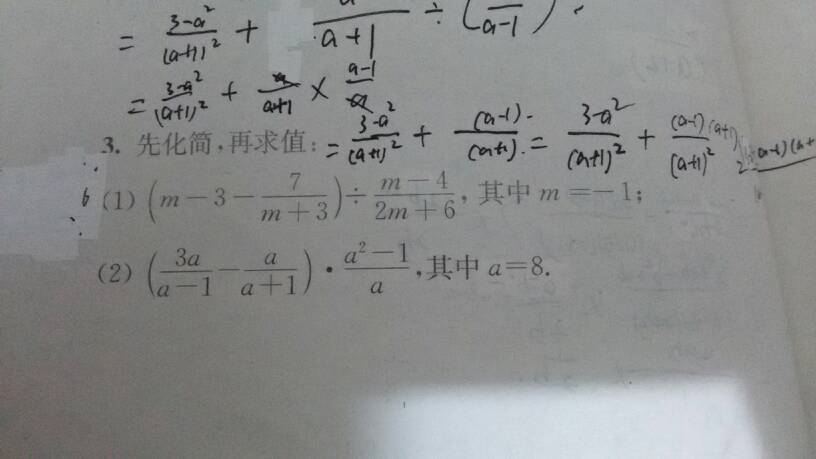 = \frac{3-a^2}{(a+1)^2} + \frac{a}{a+1} ÷ ( \frac{}{a-1} ) .
= \frac{3-a^2}{(a+1)^2} + \frac{a}{a+1} × \frac{a-1}{a}
= \frac{3-a^2}{(a+1)^2} + \frac{(a-1)}{(a+1)} = \frac{3-a^2}{(a+1)^2} + \frac{(a-1)(a+1)}{(a+1)^2}
3. 先化简,再求值:
6 (1) (m-3-\frac{7}{m+3}) ÷ \frac{m-4}{2m+6}, 其中 m=-1;
(2) (\frac{3a}{a-1}-\frac{a}{a+1}) · \frac{a^2-1}{a},其中 a=8.